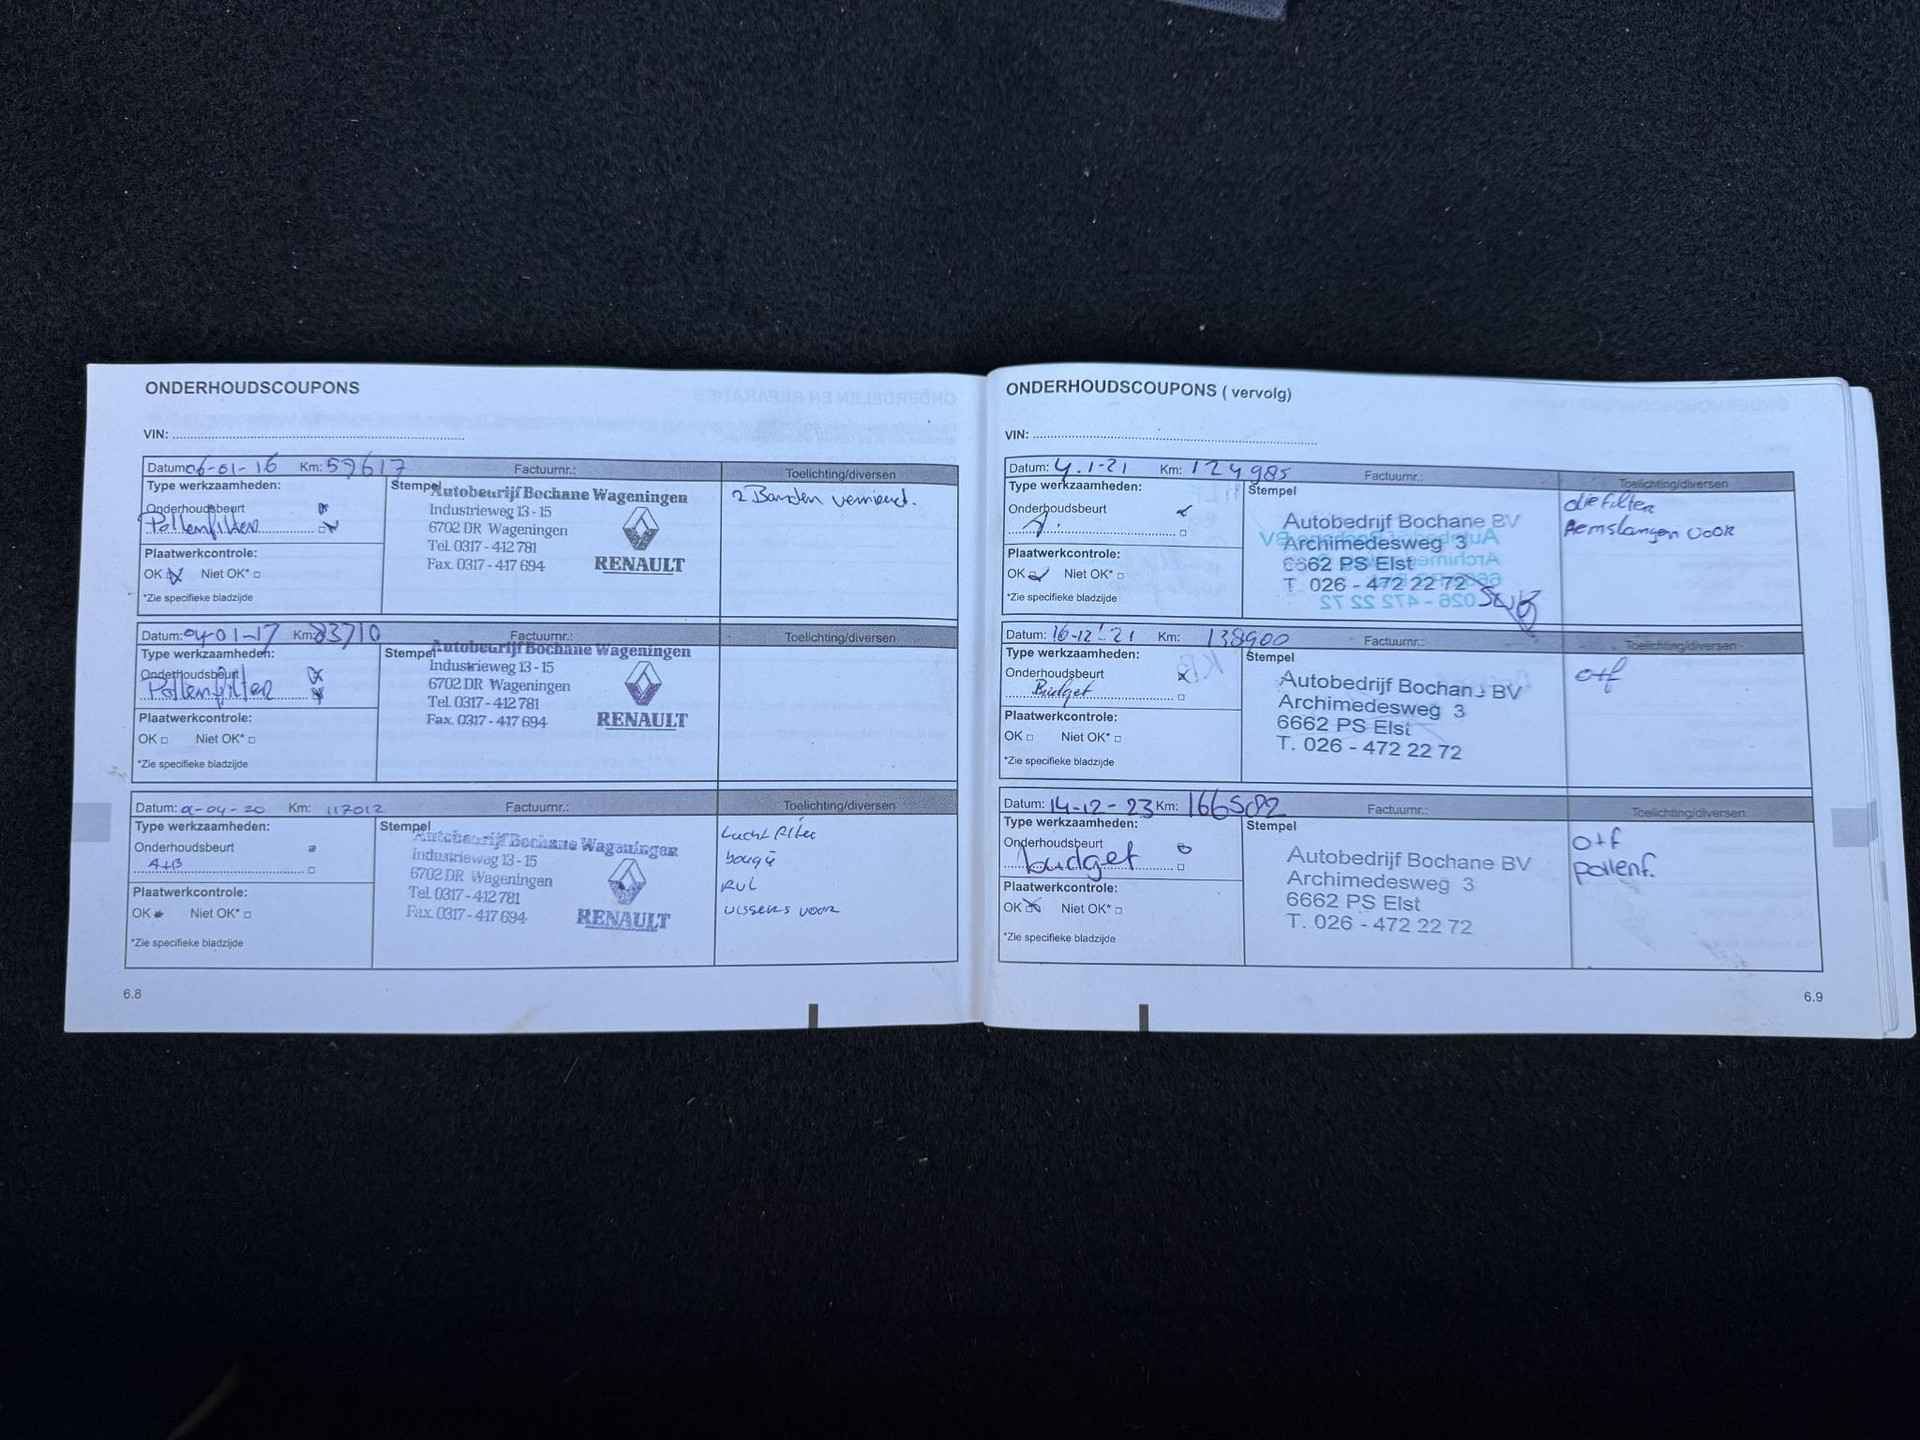 ONDERHOUDSCOUPONS
VIN:
Datum: 06-01-16 Km: 59617 Factuurnr.: Toelichting/diversen
Type werkzaamheden: Stempel
Onderhoudsbeurt
Pollenfilter
Plaatwerkcontrole:
OK Niet OK*
*Zie specifieke bladzijde
Autobedrijf Bochane Wageningen
Industrieweg 13 - 15
6702 DR Wageningen
Tel. 0317 - 412 781
Fax. 0317 - 417 694
RENAULT
2 Banden vernieuwd.
Datum: 04-01-17 Km: 83710 Factuurnr.: Toelichting/diversen
Type werkzaamheden: Stempel
Onderhoudsbeurt
Pollenfilter
Plaatwerkcontrole:
OK Niet OK*
*Zie specifieke bladzijde
Autobedrijf Bochane Wageningen
Industrieweg 13 - 15
6702 DR Wageningen
Tel. 0317 - 412 781
Fax. 0317 - 417 694
RENAULT
Datum: -04-20 Km: 117012 Factuurnr.: Toelichting/diversen
Type werkzaamheden: Stempel
Onderhoudsbeurt
A+B
Plaatwerkcontrole:
OK Niet OK*
*Zie specifieke bladzijde
Autobedrijf Bochane Wageningen
Industrieweg 13 - 15
6702 DR Wageningen
Tel. 0317 - 412 781
Fax. 0317 - 417 694
RENAULT
Lucht filter
bougie
RVL
wissers voor
6.8
ONDERHOUDSCOUPONS ( vervolg)
VIN:
Datum: 4.1-21 Km: 124985 Factuurnr.: Toelichting/diversen
Type werkzaamheden: Stempel
Onderhoudsbeurt
A.
Plaatwerkcontrole:
OK Niet OK*
*Zie specifieke bladzijde
Autobedrijf Bochane BV
Archimedesweg 3
6662 PS Elst
T. 026 - 472 22 72
oliefilter
Remslangen voor
Datum: 16-12-21 Km: 138900 Factuurnr.: Toelichting/diversen
Type werkzaamheden: Stempel
Onderhoudsbeurt
Budget
Plaatwerkcontrole:
OK Niet OK*
*Zie specifieke bladzijde
Autobedrijf Bochane BV
Archimedesweg 3
6662 PS Elst
T. 026 - 472 22 72
o+f
Datum: 14-12-23 Km: 166502 Factuurnr.: Toelichting/diversen
Type werkzaamheden: Stempel
Onderhoudsbeurt
budget
Plaatwerkcontrole:
OK Niet OK*
*Zie specifieke bladzijde
Autobedrijf Bochane BV
Archimedesweg 3
6662 PS Elst
T. 026 - 472 22 72
o+f
pollenf.
6.9